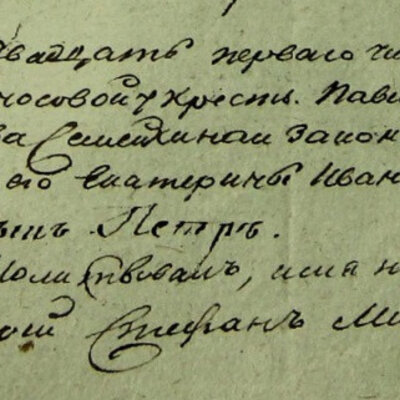 двадцать перваго чи
носовой у крест. Пави
ва Семехинаи закон
его Екатерины Иван
сынъ Петръ.
Молитвовалъ, имя н
Стефанъ Ми